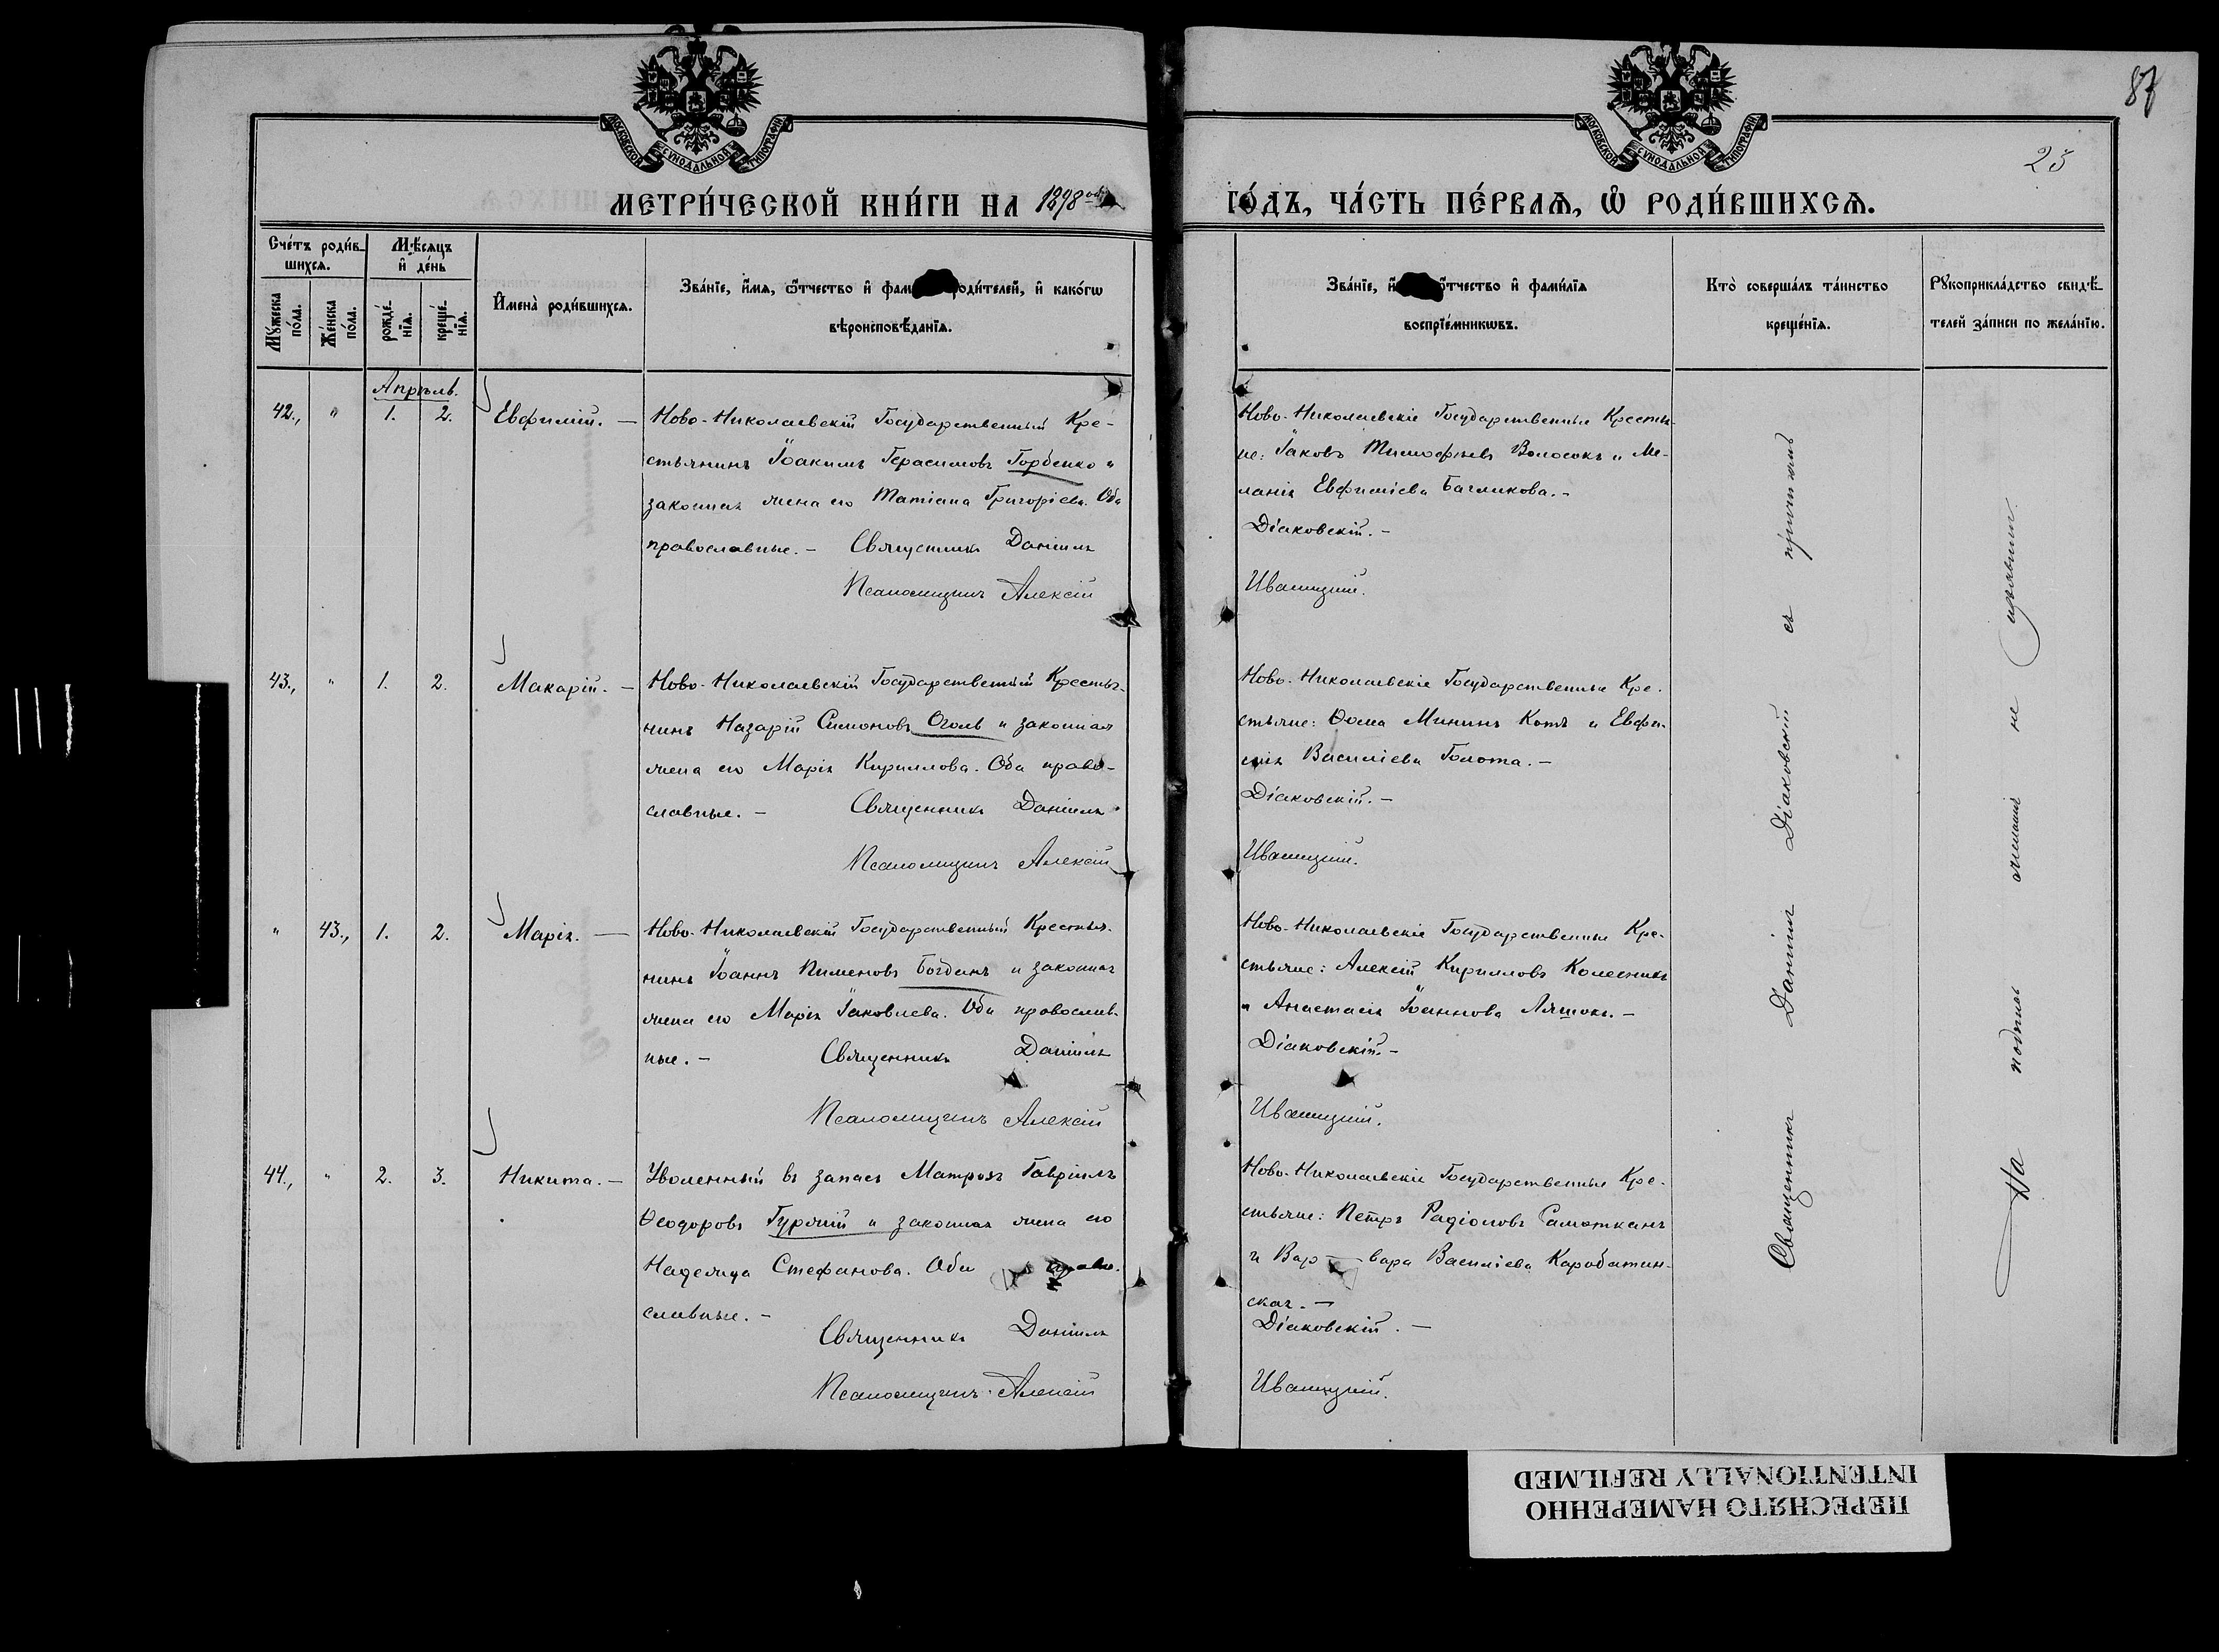 87
23
МОСКОВСКОЙ СѴНОДАЛЬНОЙ ТИПОГРАФІИ
МОСКОВСКОЙ СѴНОДАЛЬНОЙ ТИПОГРАФІИ
МЕТРИ́ЧЕСКОЙ КНИ́ГИ НА 1898 ой
ГО́ДЪ, ЧА́СТЬ ПЕ́РВАѦ, Ѡ҆ РОДИ́ВШИХСѦ.
Сче́тъ роди́в-
шихсѧ.
Мѣ́сѧцъ
и҆ де́нь
Мꙋ́жеска по́ла.
Же́нска по́ла.
рожде́-
нїѧ.
креще́-
нїѧ.
И҆мена̀ роди́вшихсѧ.
Зва́нїе, и҆́мѧ, ѻ҆́тчество и҆ фам оди́телей, и҆ како́гѡ
вѣроисповѣ́данїѧ.
Зва́нїе, и҆ ѻ҆́тчество и҆ фами́лїѧ
воспрїе́мникѡвъ.
Кто̀ соверша́лъ та́инство
креще́нїѧ.
Рꙋкоприкла́дство свидѣ́-
телей за́писи по жела́нїю.
Апрѣль.
42., " 1. 2. Евфимій. —
Ново-Николаевскій Государственный Кре-
стьянинъ Іоакимъ Герасимовъ Горбенко и
законная жена его Татіана Григоріева. Оба
православные. – Священникъ Даніилъ
Псаломщикъ Алексій
Ново-Николаевскіе Государственные Крестья-
не: Іаковъ Тимофѣевъ Волосокъ и Ме-
ланія Евфиміева Багликова. -
Діаковскій. –
Иваницкій.
43., " 1. 2. Макарій. —
Ново-Николаевскій Государственный Крестья-
нинъ Назарій Симоновъ Оголь и законная
жена его Марія Кириллова. Оба право-
славные. – Священникъ Даніилъ
Псаломщикъ Алексій
Ново-Николаевскіе Государственные Кре-
стьяне: Ѳома Мининъ Котъ и Евфи-
мія Василіева Голота. –
Діаковскій. –
Иваницкій.
" 43., 1. 2. Марія. —
Ново-Николаевскій Государственный Крестья-
нинъ Іоаннъ Пименовъ Богданъ и законная
жена его Марія Іаковлева. Оба православ-
ные. – Священникъ Даніилъ
Псаломщикъ Алексій
Ново-Николаевскіе Государственные Кре-
стьяне: Алексій Кирилловъ Колесникъ
и Анастасія Іоаннова Ляшокъ. –
Діаковскій. –
Иваницкій.
44., " 2. 3. Никита. —
Уволенный въ запасъ Матросъ Гавріилъ
Ѳеодоровъ Гуржій и законная жена его
Надежда Стефанова. Оба право-
славные. –
Священникъ Даніилъ
Псаломщикъ Алексій
Ново-Николаевскіе Государственные Кре-
стьяне: Петръ Радіоновъ Самотканъ
и Вар — вара Василіева Каробатин-
ская. —
Діаковскій. —
Иваницкій.
Священникъ Даніилъ Діаковскій съ причтомъ
На подпись желанія не изъявили.
ПЕРЕСНЯТО НАМЕРЕННО
INTENTIONALLY REFILMED